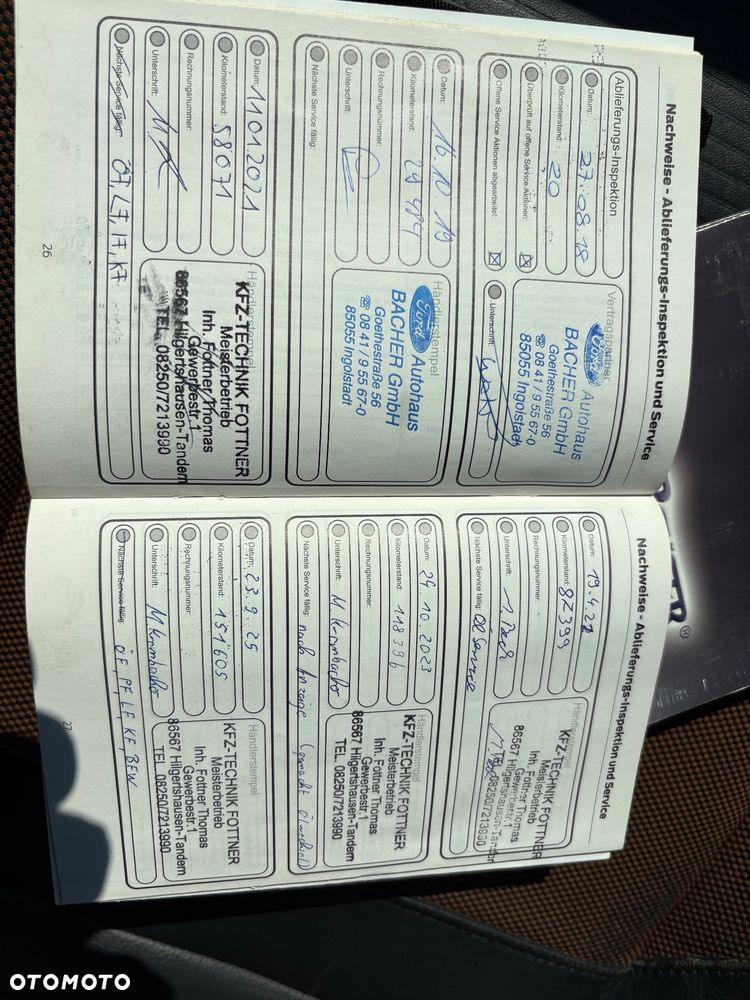 Nachweise - Ablieferungs-Inspektion und Service
Ablieferungs-Inspektion
Datum: 27.08.18
Kilometerstand: 20
Überprüft auf offene Service Aktionen: ☒
Offene Service Aktionen abgearbeitet: ☒
Vertragspartner
Ford Autohaus
BACHER GmbH
Goethestraße 56
☎ 08 41 / 9 55 67-0
85055 Ingolstadt
Unterschrift:
Datum: 16.10.19
Kilometerstand: 29 484
Rechnungsnummer:
Unterschrift:
Nächste Service fällig:
Händlerstempel
Ford Autohaus
BACHER GmbH
Goethestraße 56
☎ 08 41 / 9 55 67-0
85055 Ingolstadt
Datum: 11.01.2021
Kilometerstand: 58071
Rechnungsnummer:
Unterschrift:
Nächste Service fällig: ÖF, LF, IF, KF
Händlerstempel
KFZ-TECHNIK FOTTNER
Meisterbetrieb
Inh. Fottner Thomas
Gewerbestr.1
86567 Hilgertshausen-Tandern
TEL. 08250/7213990
26
Nachweise - Ablieferungs-Inspektion und Service
Datum: 19.4.22
Kilometerstand: 87399
Rechnungsnummer:
Unterschrift:
Nächste Service fällig: Öl Service
Händlerstempel
KFZ-TECHNIK FOTTNER
Meisterbetrieb
Inh. Fottner Thomas
Gewerbestr.1
86567 Hilgertshausen-Tandern
TEL. 08250/7213990
Datum: 24.10.2023
Kilometerstand: 118386
Rechnungsnummer:
Unterschrift: M. Krombacher
Nächste Service fällig: nach Anzeige (gemacht Ölwechsel)
Händlerstempel
KFZ-TECHNIK FOTTNER
Meisterbetrieb
Inh. Fottner Thomas
Gewerbestr.1
86567 Hilgertshausen-Tandern
TEL. 08250/7213990
Datum: 23.9.25
Kilometerstand: 151605
Rechnungsnummer:
Unterschrift: M. Krombacher
Nächste Service fällig: ÖF, PF, LF, KF, BFW
Händlerstempel
KFZ-TECHNIK FOTTNER
Meisterbetrieb
Inh. Fottner Thomas
Gewerbestr.1
86567 Hilgertshausen-Tandern
TEL. 08250/7213990
27
OTOMOTO